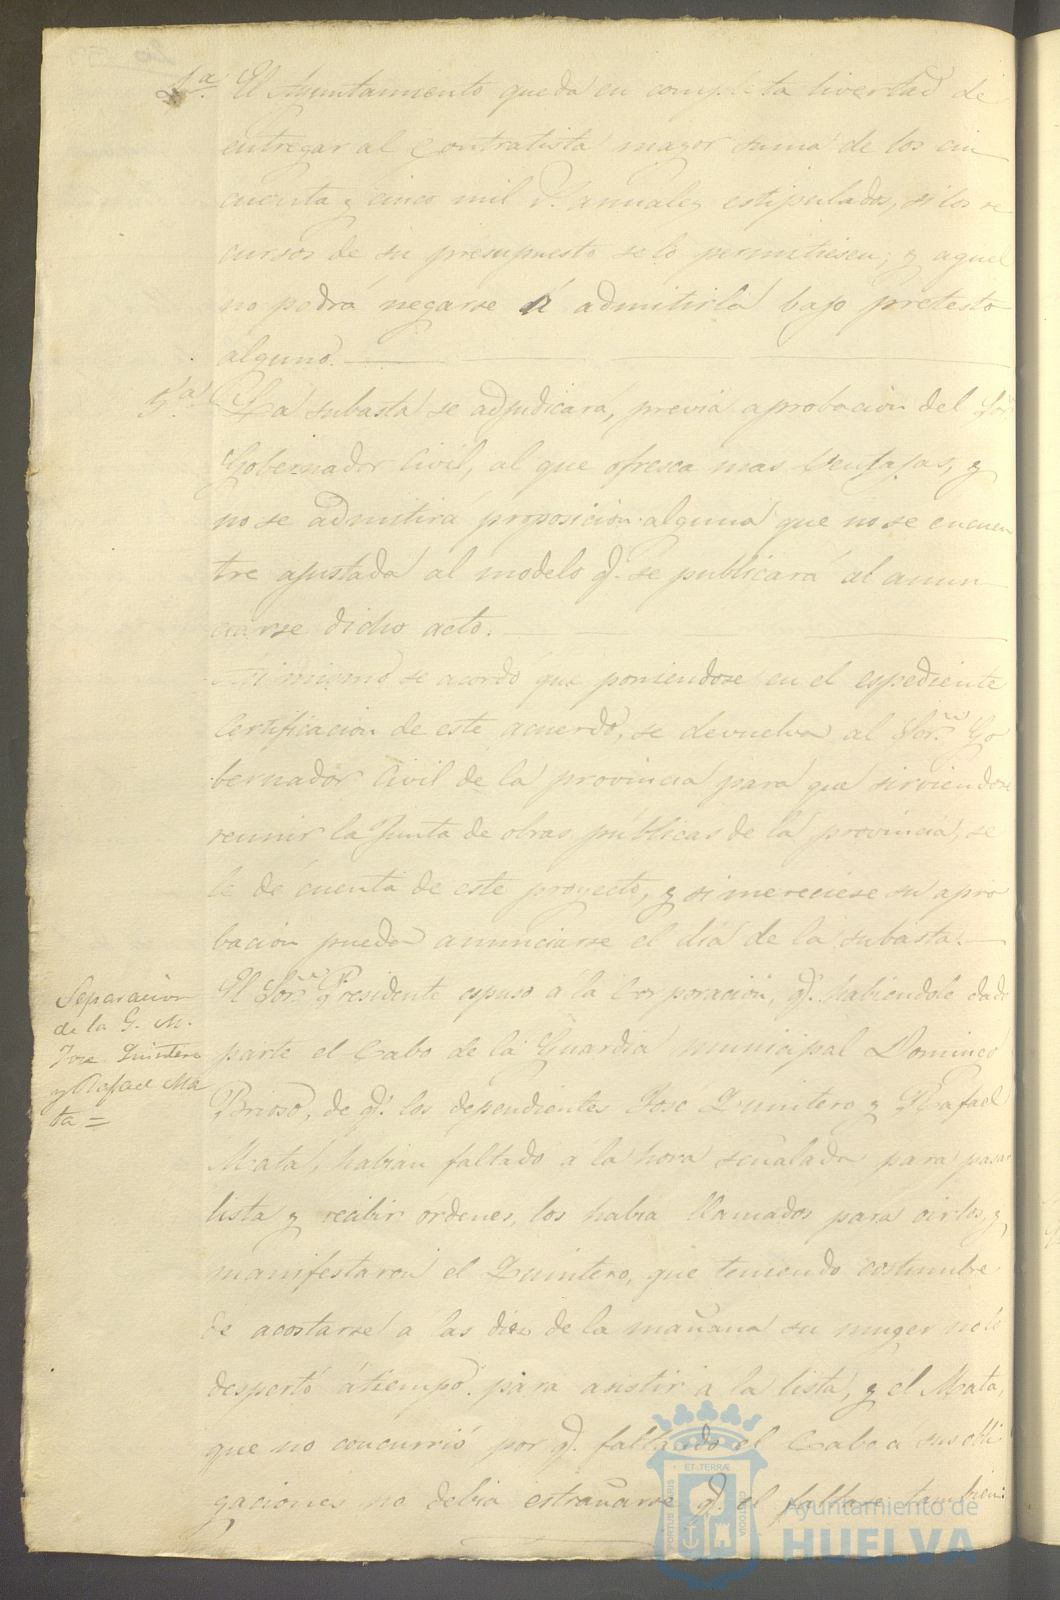 4ª El Ayuntamiento queda en completa livertad de
entregar al Contratista mayor suma de los cin
cuenta y cinco mil r.s anuales estipulados, si los re
cursos de su presupuesto se lo permitiesen; y aquel
no podrá negarse á admitirla bajo pretesto
alguno.
5ª La subasta se adjudicará, previa aprobacion del Sor.
Gobernador Civil, al que ofresca mas ventajas, y
no se admitirá proposicion alguna que no se encuen
tre ajustada al modelo q.e se publicará al anun
ciarse dicho acto.
Asi mismo se acordó que poniendose en el espediente
Certificacion de este acuerdo, se devuelva al Sor. Go
bernador Civil de la provincia para que sirviendose
reunir la Junta de obras públicas de la provincia, se
le dé cuenta de este proyecto, y si mereciese su apro
bacion pueda anunciarse el dia de la subasta.
Separacion
de la G. M.
Jose Quintero
y Rafael Ma
ta =
El Sor. Presidente espuso á la Corporacion, q.e habiendole dado
parte el Cabo de la Guardia municipal Domingo
Brioso, de q.e los dependientes Jose Quintero y Rafael
Mata, habian faltado á la hora señalada para pasar
lista y recibir órdenes, los habia llamados para oirlos, y
manifestaron el Quintero, que teniendo costumbre
de acostarse á las diez de la mañana su muger no le
despertó á tiempo para asistir á la lista, y el Mata,
que no concurrió por q.e faltando el Cabo á sus obli
gaciones no debia estrañarse q.e el faltase tambien:
Ayuntamiento de
HUELVA